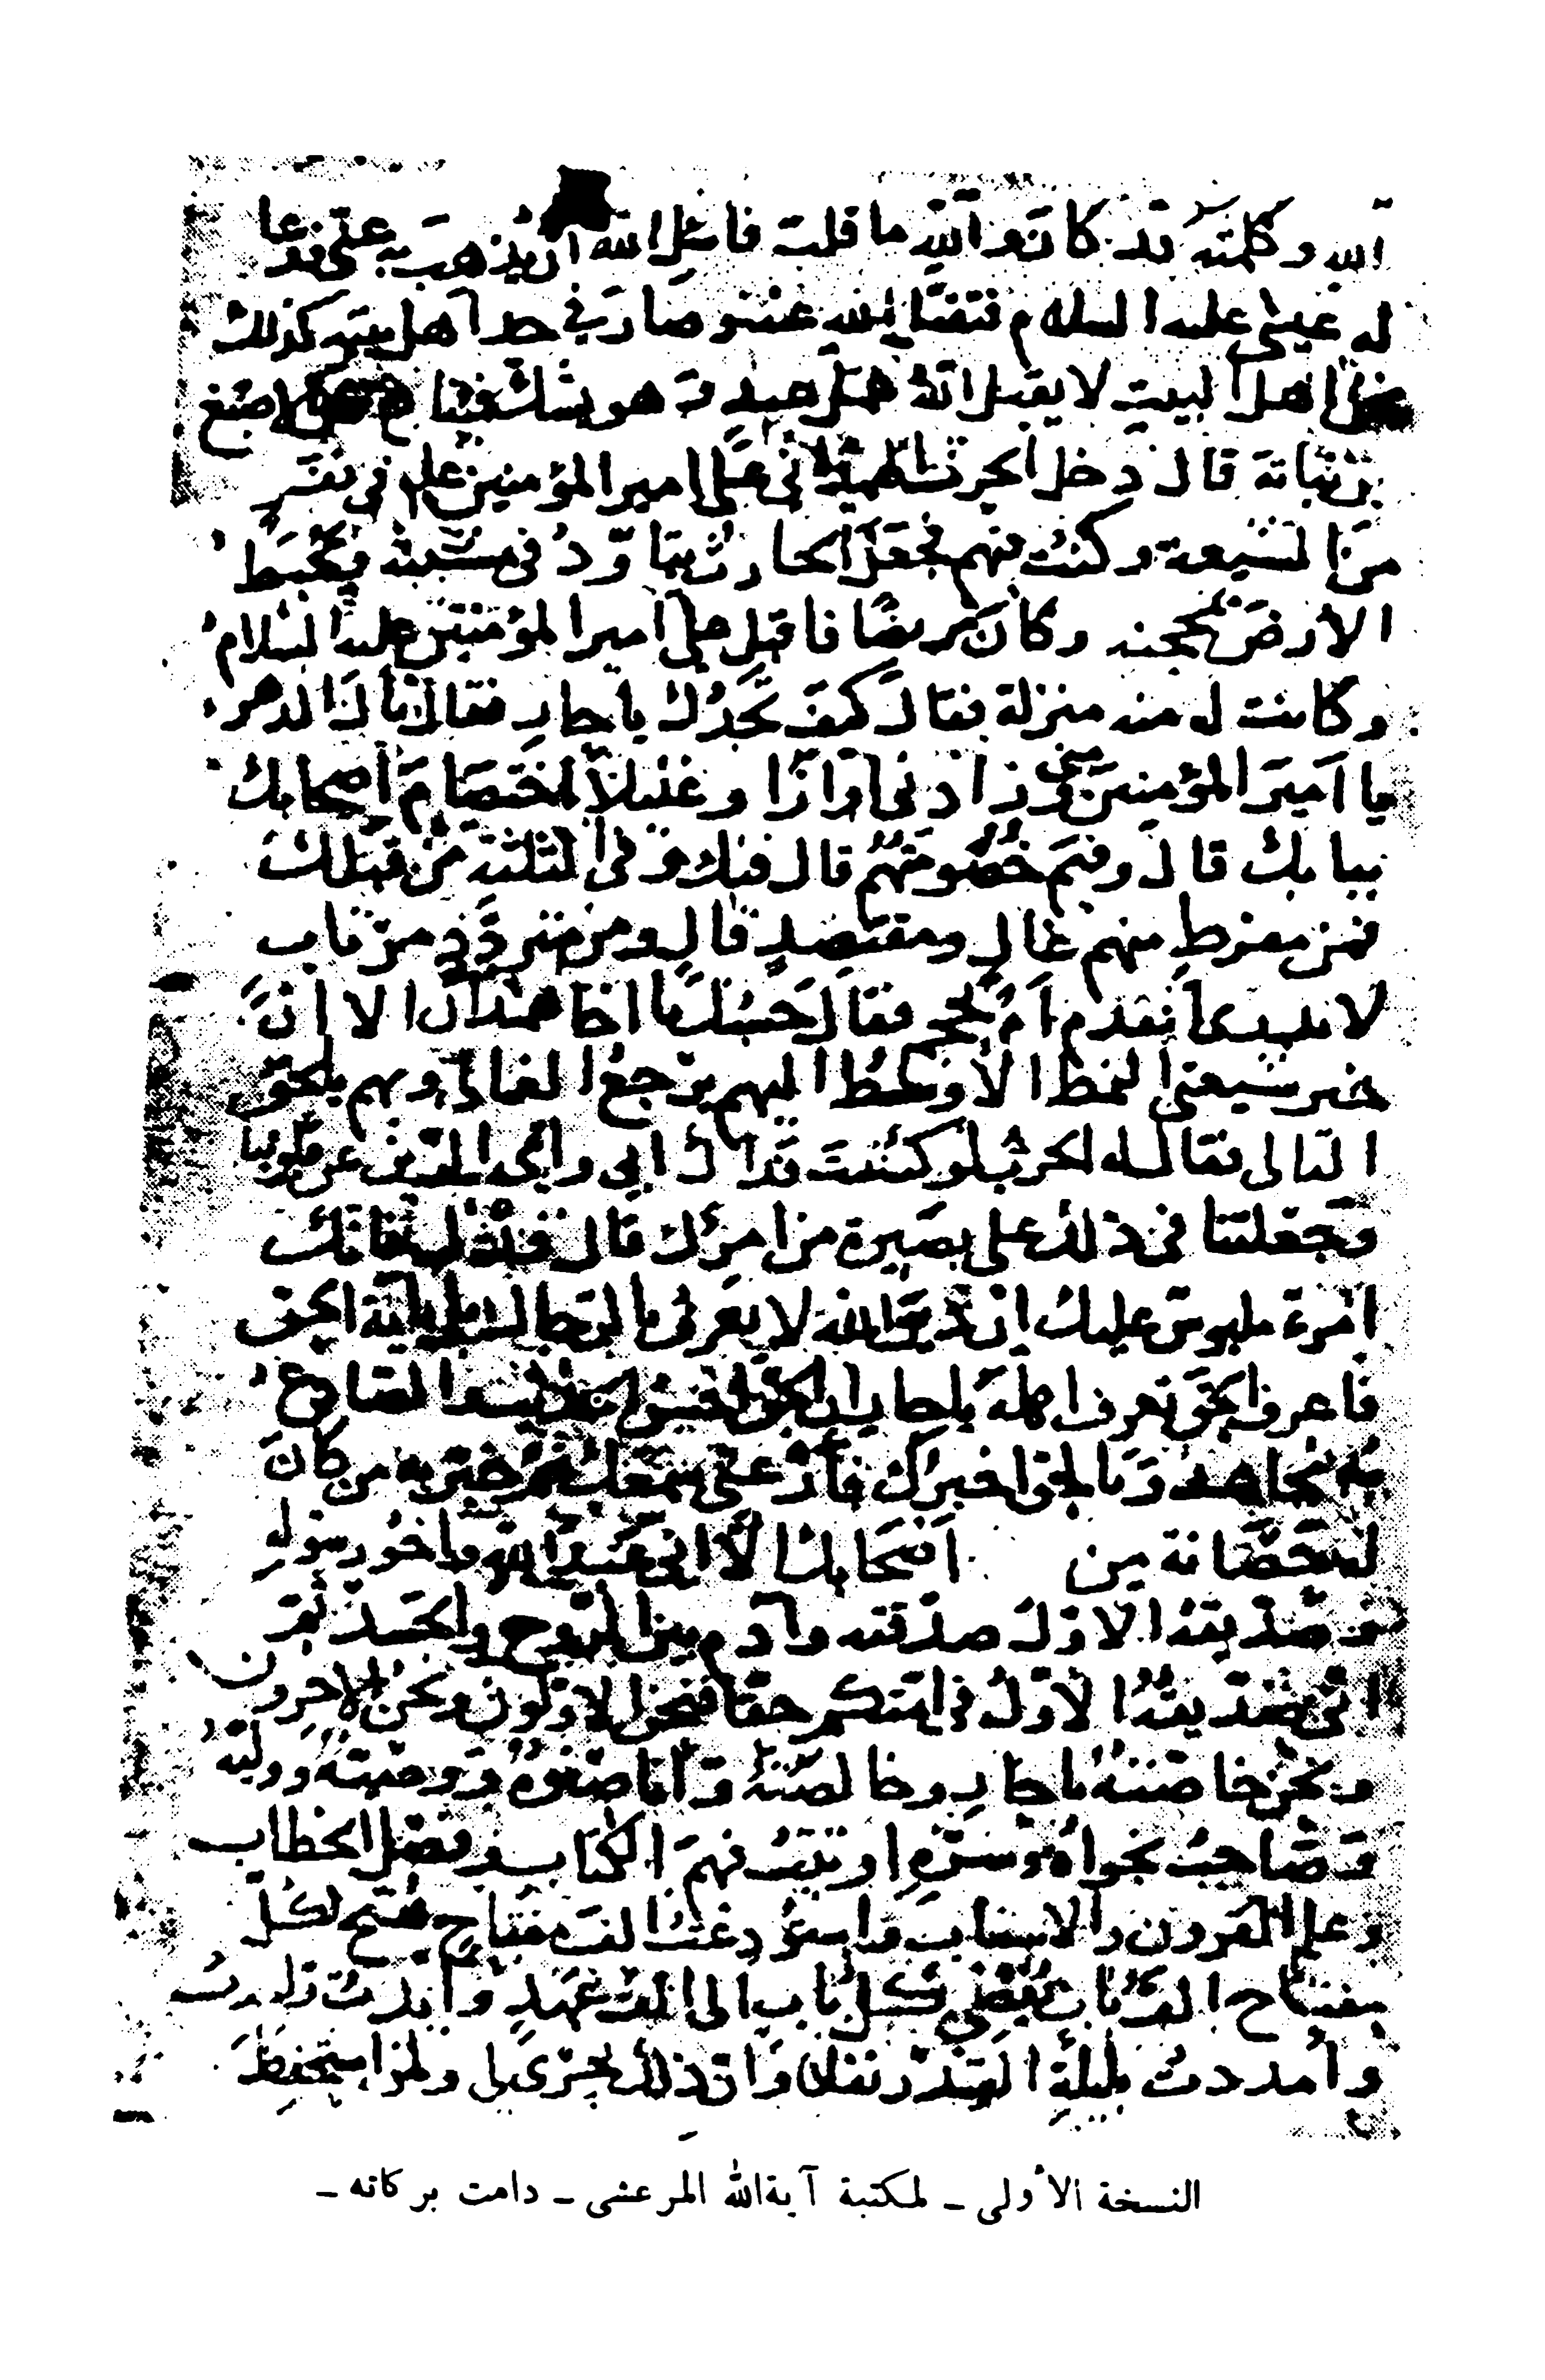 الله وكلمته قد كان والله ما قلت فاسل الله ان يذهب به عني فدعا
له عيسى عليه السلام فتفضل الله عليه وصار في حد اهل بيته كذلك
نحن اهل البيت لا يقبل الله عمل عبد وهو يشك فينا الاصبغ
بن نباتة قال دخل الحرث الهمداني على امير المؤمنين علم في نفر
من الشيعة وكنت فيهم فجعل الحارث يتأود في مشيته ويخبط
الارض بمحجنه وكان مريضا فاقبل علي امير المؤمنين عليه السلام
وكانت له منه منزلة فقال كيف تجدك يا حار فقال نال الدهر
يا امير المؤمنين مني وزادني اوارا وغليلا اختصام اصحابك
ببابك قال وفيم خصومتهم قال فيك وفي الثلثة من قبلك
فمن مفرط منهم غال ومقتصد قال ومن متردد مرتاب
لا يدري ايقدم ام يحجم فقال حسبك يا اخا همدان الا ان
خير شيعتي النمط الاوسط اليهم يرجع الغالي وبهم يلحق
التالي فقال له الحرث لو كشفت فداك ابي وامي الرين عن قلوبنا
وجعلتنا في ذلك على بصيرة من امرك قال قدك فانك
امرؤ ملبوس عليك ان دين الله لا يعرف بالرجال بل باية الحق
فاعرف الحق تعرف اهله يا حار ان الحق احسن الحديث والصادع
به مجاهد وبالحق اخبرك فارعني سمعك ثم خبر به من كان
له حصانة من اصحابك الا اني عبد الله واخو رسوله
وصديقه الاول صدقته وآدم بين الروح والجسد ثم
اني صديقه الاول في امتكم حقا فنحن الاولون ونحن الاخرون
ونحن خاصته يا حار وخالصته وانا صنوه ووصيه ووليه
وصاحب نجواه وسره اوتيت فهم الكتاب وفصل الخطاب
وعلم القرون والاسباب واستودعت الف مفتاح يفتح كل
مفتاح الف باب يفضي كل باب الى الف عهد وايدت
وامددت بليلة القدر نفلا وان ذلك ليجري لي ولمن استحفظ
النسخة الأولى - لمكتبة آية الله المرعشي - دامت بركاته -